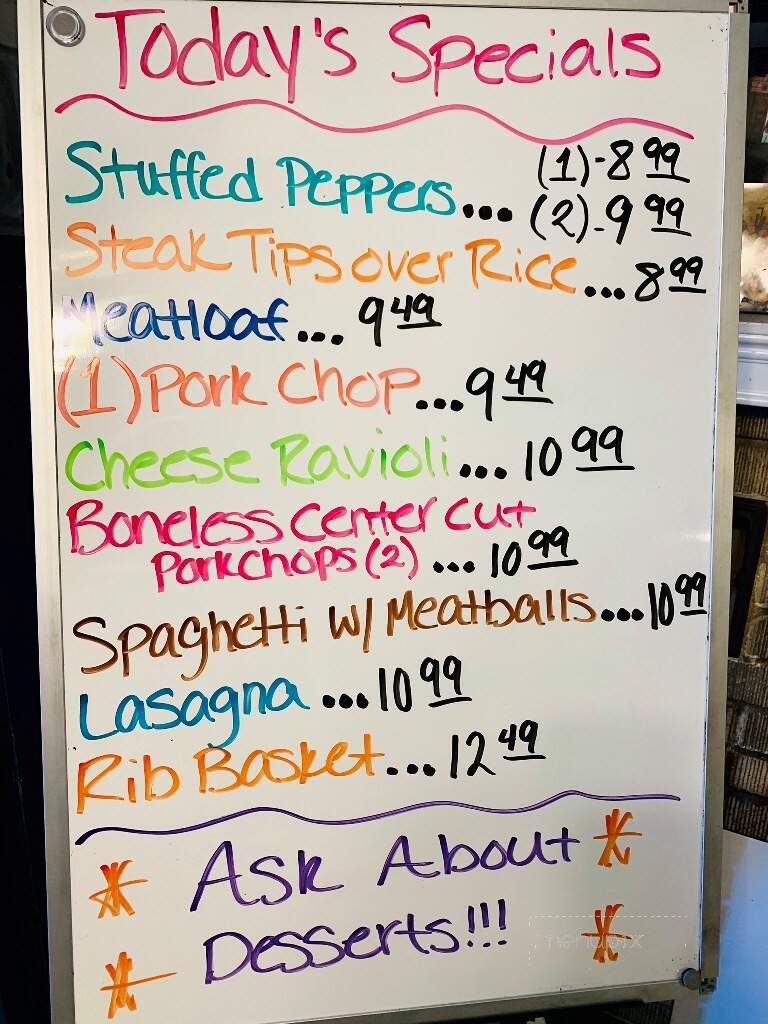 Today's Specials
Stuffed Peppers... (1)-8 99
(2)-9 99
Steak Tips over Rice... 8 99
Meatloaf... 9 49
(1) Pork Chop... 9 49
Cheese Ravioli... 10 99
Boneless Center Cut
Porkchops (2) ... 10 99
Spaghetti w/ Meatballs... 10 99
Lasagna ... 10 99
Rib Basket... 12 49
Ask About
Desserts!!!